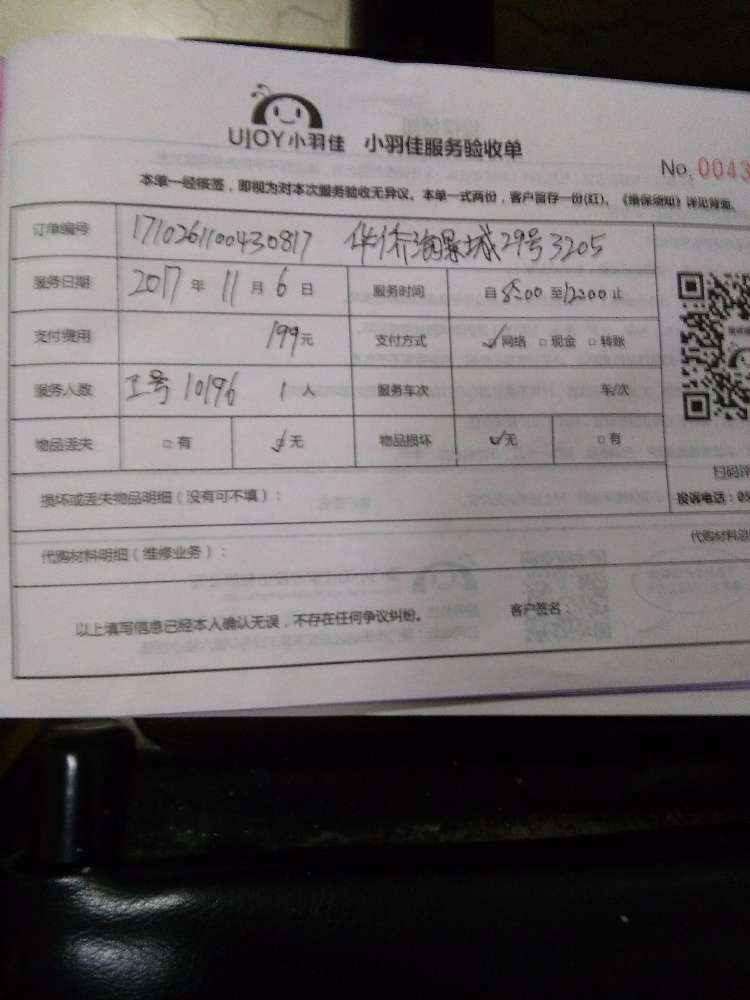 UJOY小羽佳 小羽佳服务验收单
No. 0043
本单一经签签，即视为对本次服务验收无异议。本单一式两份，客户留存一份(红)。《维保须知》详见背面。
订单编号 1710261100430817 华侨海景城29号3205
服务日期 2017年11月6日 服务时间 自8:00至12:00止
支付费用 199元 支付方式 ☑网络 □现金 □转账
服务人数 工号10196 1人 服务车次 车/次
物品丢失 □有 ☑无 物品损坏 ☑无 □有
扫码评
损坏或丢失物品明细（没有可不填）：
投诉电话：05
代购材料明细（维修业务）：
代购材料总
以上填写信息已经本人确认无误，不存在任何争议纠纷。 客户签名：